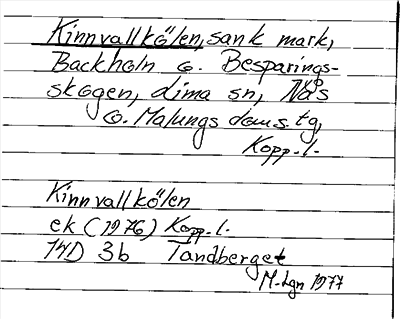 Kinnvallkölen, sank mark,
Backholn o. Besparings-
skogen, Lima sn, Nås
o. Malungs doms. tg,
Kopp. l.
Kinnvallkölen
ek (1976) Kopp. l.
14D 3b Tandberget
M-Lgn 1977